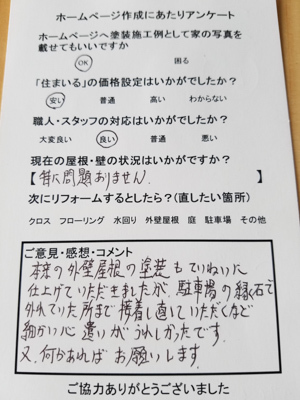 ホームページ作成にあたりアンケート
ホームページへ塗装施工例として家の写真を
載せてもいいですか
OK 困る
「住まいる」の価格設定はいかがでしたか？
安い 普通 高い わからない
職人・スタッフの対応はいかがでしたか？
大変良い 良い 普通 悪い
現在の屋根・壁の状況はいかがですか？
【特に問題ありません. 】
次にリフォームするとしたら？(直したい箇所)
クロス フローリング 水回り 外壁屋根 庭 駐車場 その他
ご意見・感想・コメント
本来の外壁屋根の塗装もていねいに
仕上げていただきましたが、駐車場の縁石で
外れていた所まで接着し直していただくなど
細かい心遣いがうれしかったです。
又、何かあれば お願いします。
ご協力ありがとうございました